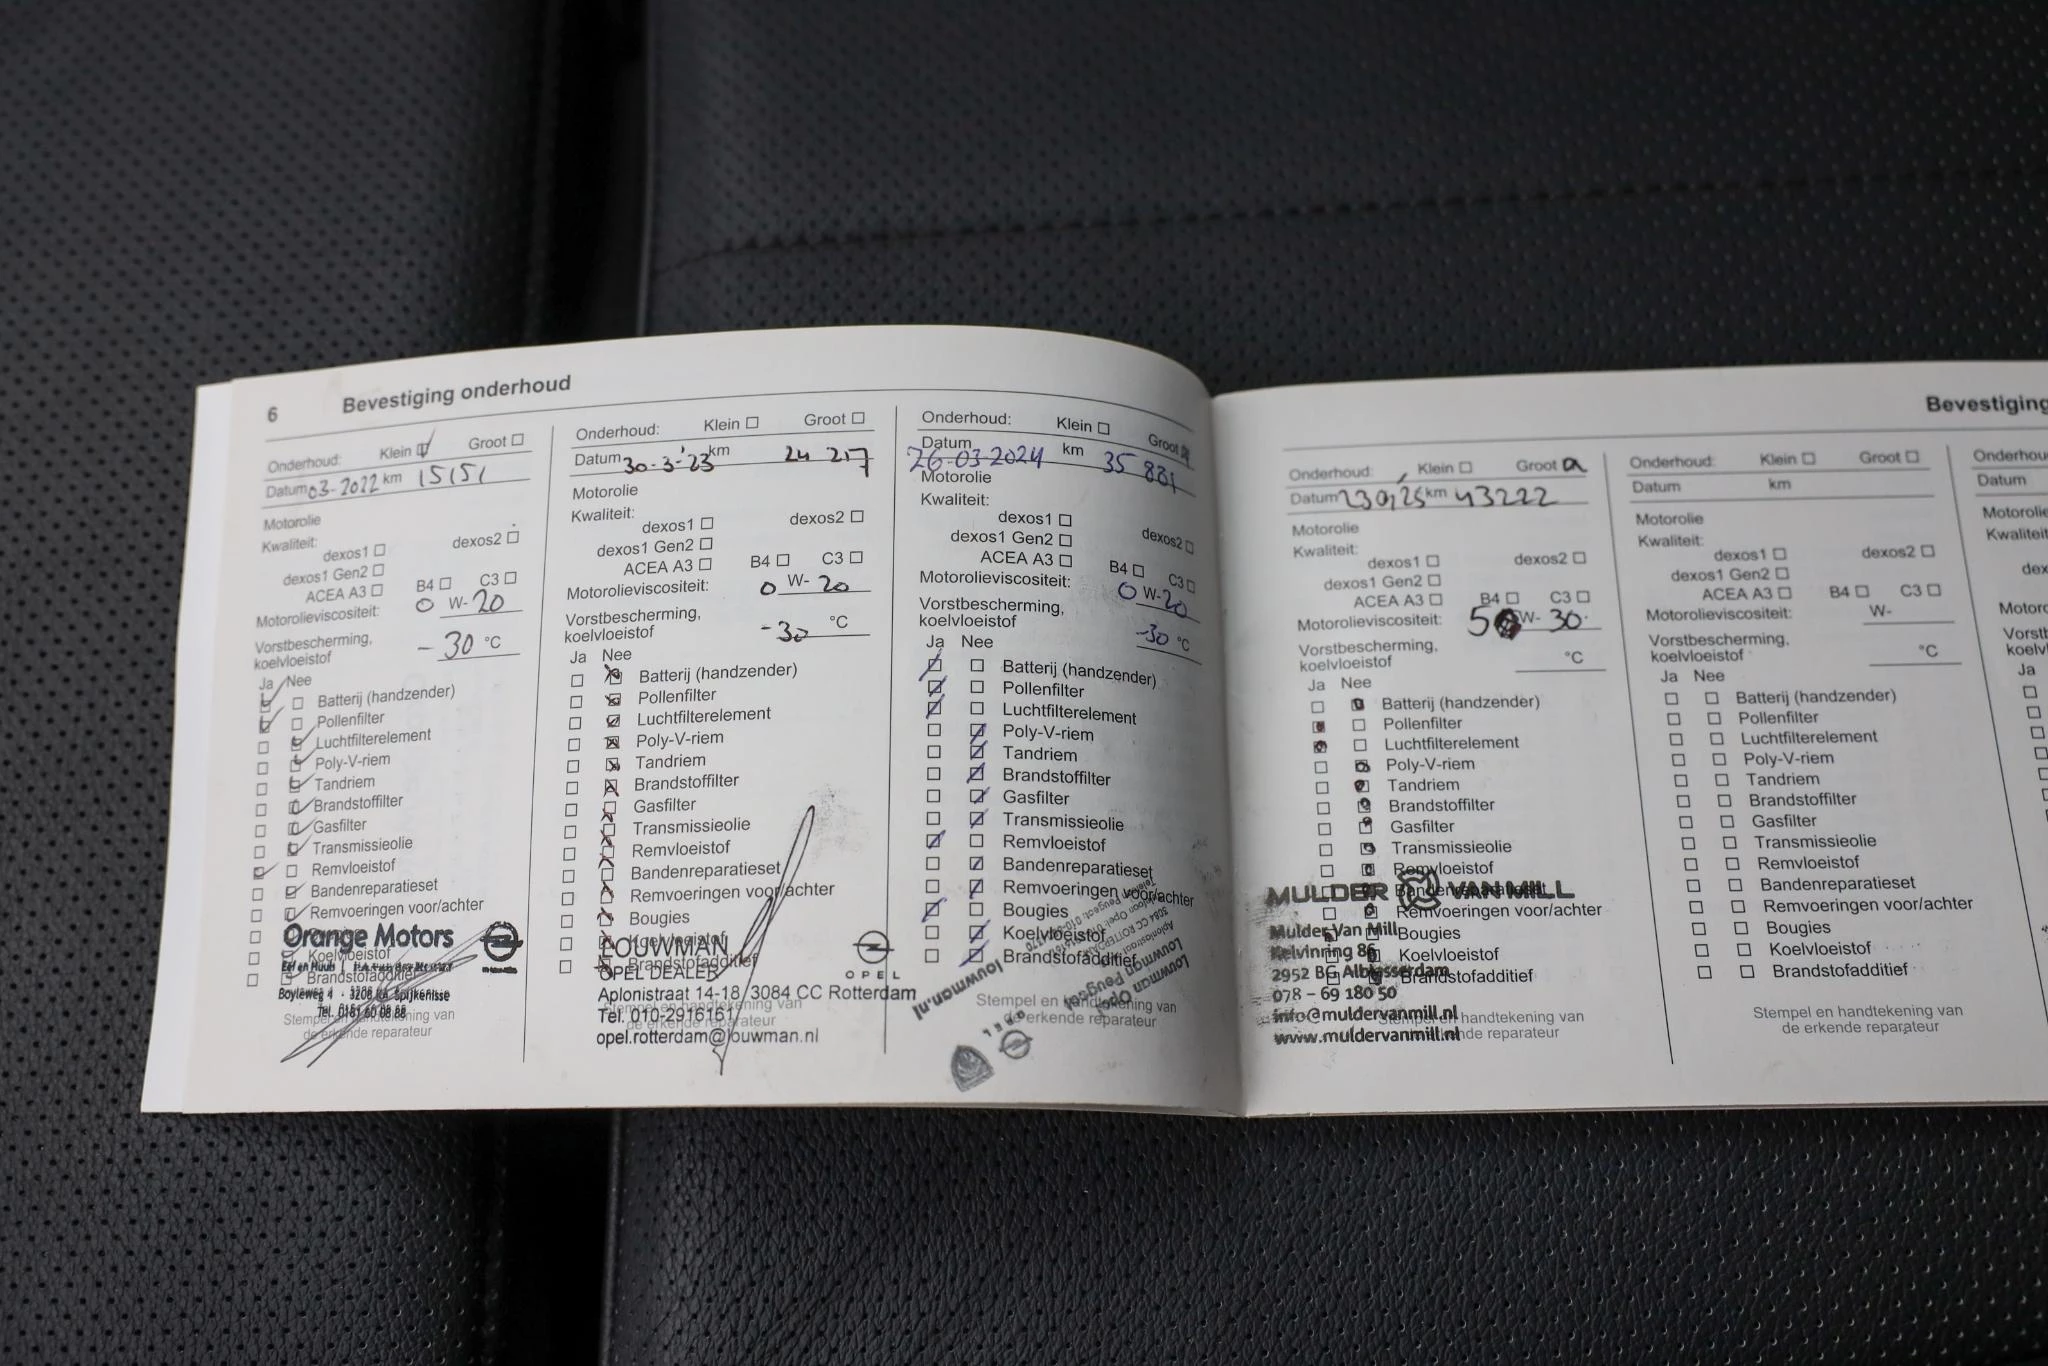 6 Bevestiging onderhoud
Onderhoud: Klein Groot
Datum 03-2022 km 15151
Motorolie
Kwaliteit:
dexos1 dexos2
dexos1 Gen2
ACEA A3 B4 C3
Motorolieviscositeit: 0 W- 20
Vorstbescherming,
koelvloeistof -30 °C
Ja Nee
Batterij (handzender)
Pollenfilter
Luchtfilterelement
Poly-V-riem
Tandriem
Brandstoffilter
Gasfilter
Transmissieolie
Remvloeistof
Bandenreparatieset
Remvoeringen voor/achter
Orange Motors
Koelvloeistof
Brandstofadditief
Boyleweg 4 - 3208 KA Spijkenisse
Tel. 0181 60 08 88
Stempel en handtekening van
de erkende reparateur
Onderhoud: Klein Groot
Datum 30-3-'23 km 24 217
Motorolie
Kwaliteit:
dexos1 dexos2
dexos1 Gen2
ACEA A3 B4 C3
Motorolieviscositeit: 0 W- 20
Vorstbescherming,
koelvloeistof -30 °C
Ja Nee
Batterij (handzender)
Pollenfilter
Luchtfilterelement
Poly-V-riem
Tandriem
Brandstoffilter
Gasfilter
Transmissieolie
Remvloeistof
Bandenreparatieset
Remvoeringen voor/achter
Bougies
Koelvloeistof
LOUWMAN
Brandstofadditief
OPEL DEALER OPEL
Aplonistraat 14-18 3084 CC Rotterdam
Stempel en handtekening van
Tel. 010-2916161
de erkende reparateur
opel.rotterdam@louwman.nl
Onderhoud: Klein Groot
Datum 26-03-2024 km 35 881
Motorolie
Kwaliteit:
dexos1 dexos2
dexos1 Gen2
ACEA A3 B4 C3
Motorolieviscositeit: 0 W- 20
Vorstbescherming,
koelvloeistof -30 °C
Ja Nee
Batterij (handzender)
Pollenfilter
Luchtfilterelement
Poly-V-riem
Tandriem
Brandstoffilter
Gasfilter
Transmissieolie
Remvloeistof
Bandenreparatieset
Remvoeringen voor/achter
Bougies
Koelvloeistof
Brandstofadditief
Louwman Opel
Louwman Peugeot
louwman.nl
OPEL
Stempel en handtekening van
de erkende reparateur
Bevestiging
Onderhoud: Klein Groot
Datum km 43222
Motorolie
Kwaliteit:
dexos1 dexos2
dexos1 Gen2
ACEA A3 B4 C3
Motorolieviscositeit: 5 W- 30
Vorstbescherming,
koelvloeistof °C
Ja Nee
Batterij (handzender)
Pollenfilter
Luchtfilterelement
Poly-V-riem
Tandriem
Brandstoffilter
Gasfilter
Transmissieolie
Remvloeistof
Bandenreparatieset
MULDER VAN MILL
Remvoeringen voor/achter
Mulder Van Mill
Bougies
Kelvinring 86
Koelvloeistof
2952 BG Alblasserdam
Brandstofadditief
078 - 69 180 50
info@muldervanmill.nl
Stempel en handtekening van
www.muldervanmill.nl
de erkende reparateur
Onderhoud: Klein Groot
Datum km
Motorolie
Kwaliteit:
dexos1 dexos2
dexos1 Gen2
ACEA A3 B4 C3
Motorolieviscositeit: W-
Vorstbescherming,
koelvloeistof °C
Ja Nee
Batterij (handzender)
Pollenfilter
Luchtfilterelement
Poly-V-riem
Tandriem
Brandstoffilter
Gasfilter
Transmissieolie
Remvloeistof
Bandenreparatieset
Remvoeringen voor/achter
Bougies
Koelvloeistof
Brandstofadditief
Stempel en handtekening van
de erkende reparateur
Datum
Ja